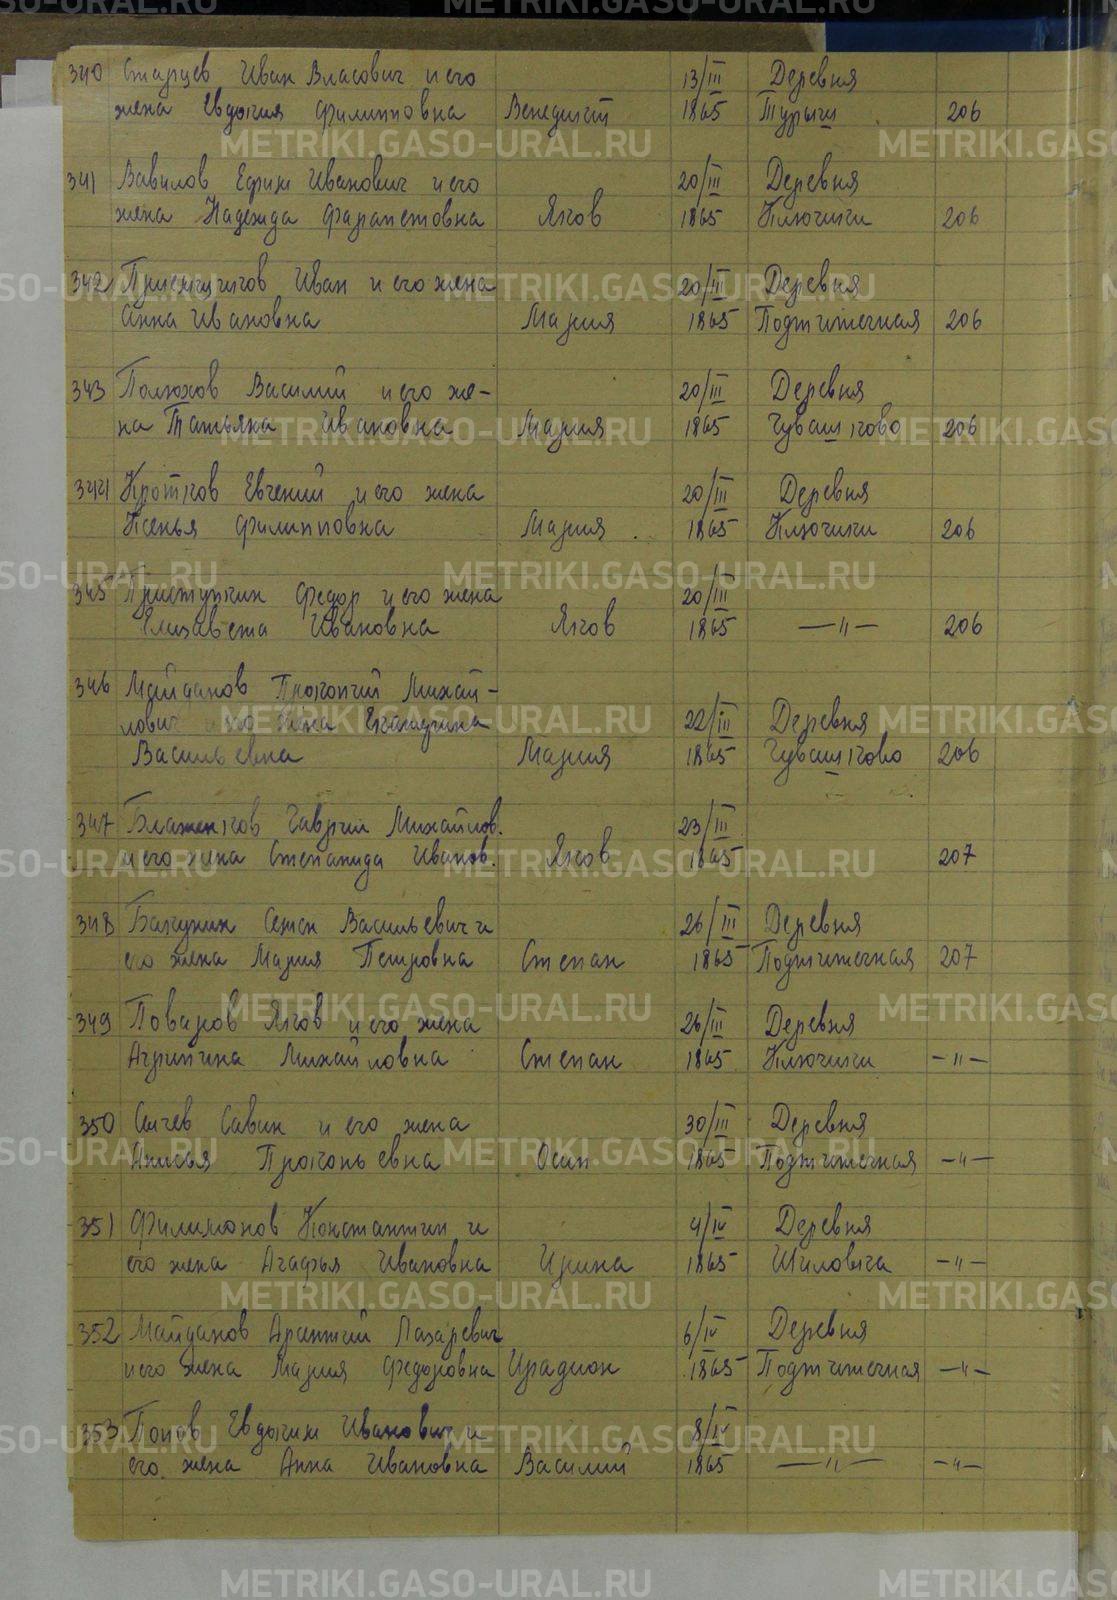 340 Старцев Иван Власович и его 13/III Деревня
жена Евдокия Филипповна Венедикт 1865 Турыши 206
341 Вавилов Ефим Иванович и его 20/III Деревня
жена Надежда Фарапетовна Яков 1865 Ключики 206
342 Присенщиков Иван и его жена 20/III Деревня
Анна Ивановна Мария 1865 Подкитечная 206
343 Полюхов Василий и его же-
20/III Деревня
на Татьяна Ивановна Мария 1865 Чувашково 206
344 Кротков Евгений и его жена 20/III Деревня
Ксенья Филипповна Мария 1865 Ключики 206
345 Приступкин Федор и его жена 20/III
Елизавета Ивановна Яков 1865 —"— 206
346 Майданов Прокопий Михай-
лович и его жена Екатерина 22/III Деревня
Васильевна Мария 1865 Чувашково 206
347 Блаженков Гаврил Михайлов. 23/III
и его жена Степанида Иванов. Яков 1865 207
348 Бакунин Семен Васильевич и 26/III Деревня
его жена Мария Петровна Степан 1865 Подкитечная 207
349 Поваров Яков и его жена 26/III Деревня
Агрипина Михайловна Степан 1865 Ключики —"—
350 Сычев Савин и его жена 30/III Деревня
Анисья Прокопьевна Осип 1865 Подкитечная —"—
351 Филимонов Константин и 4/IV Деревня
его жена Агафья Ивановна Ирина 1865 Шиловича —"—
352 Майданов Арентий Лазаревич 6/IV Деревня
и его жена Мария Федоровна Ирадион 1865 Подкитечная —"—
353 Попов Евдоким Иванович и 8/IV
его жена Анна Ивановна Василий 1865 —"— —"—
METRIKI.GASO-URAL.RU